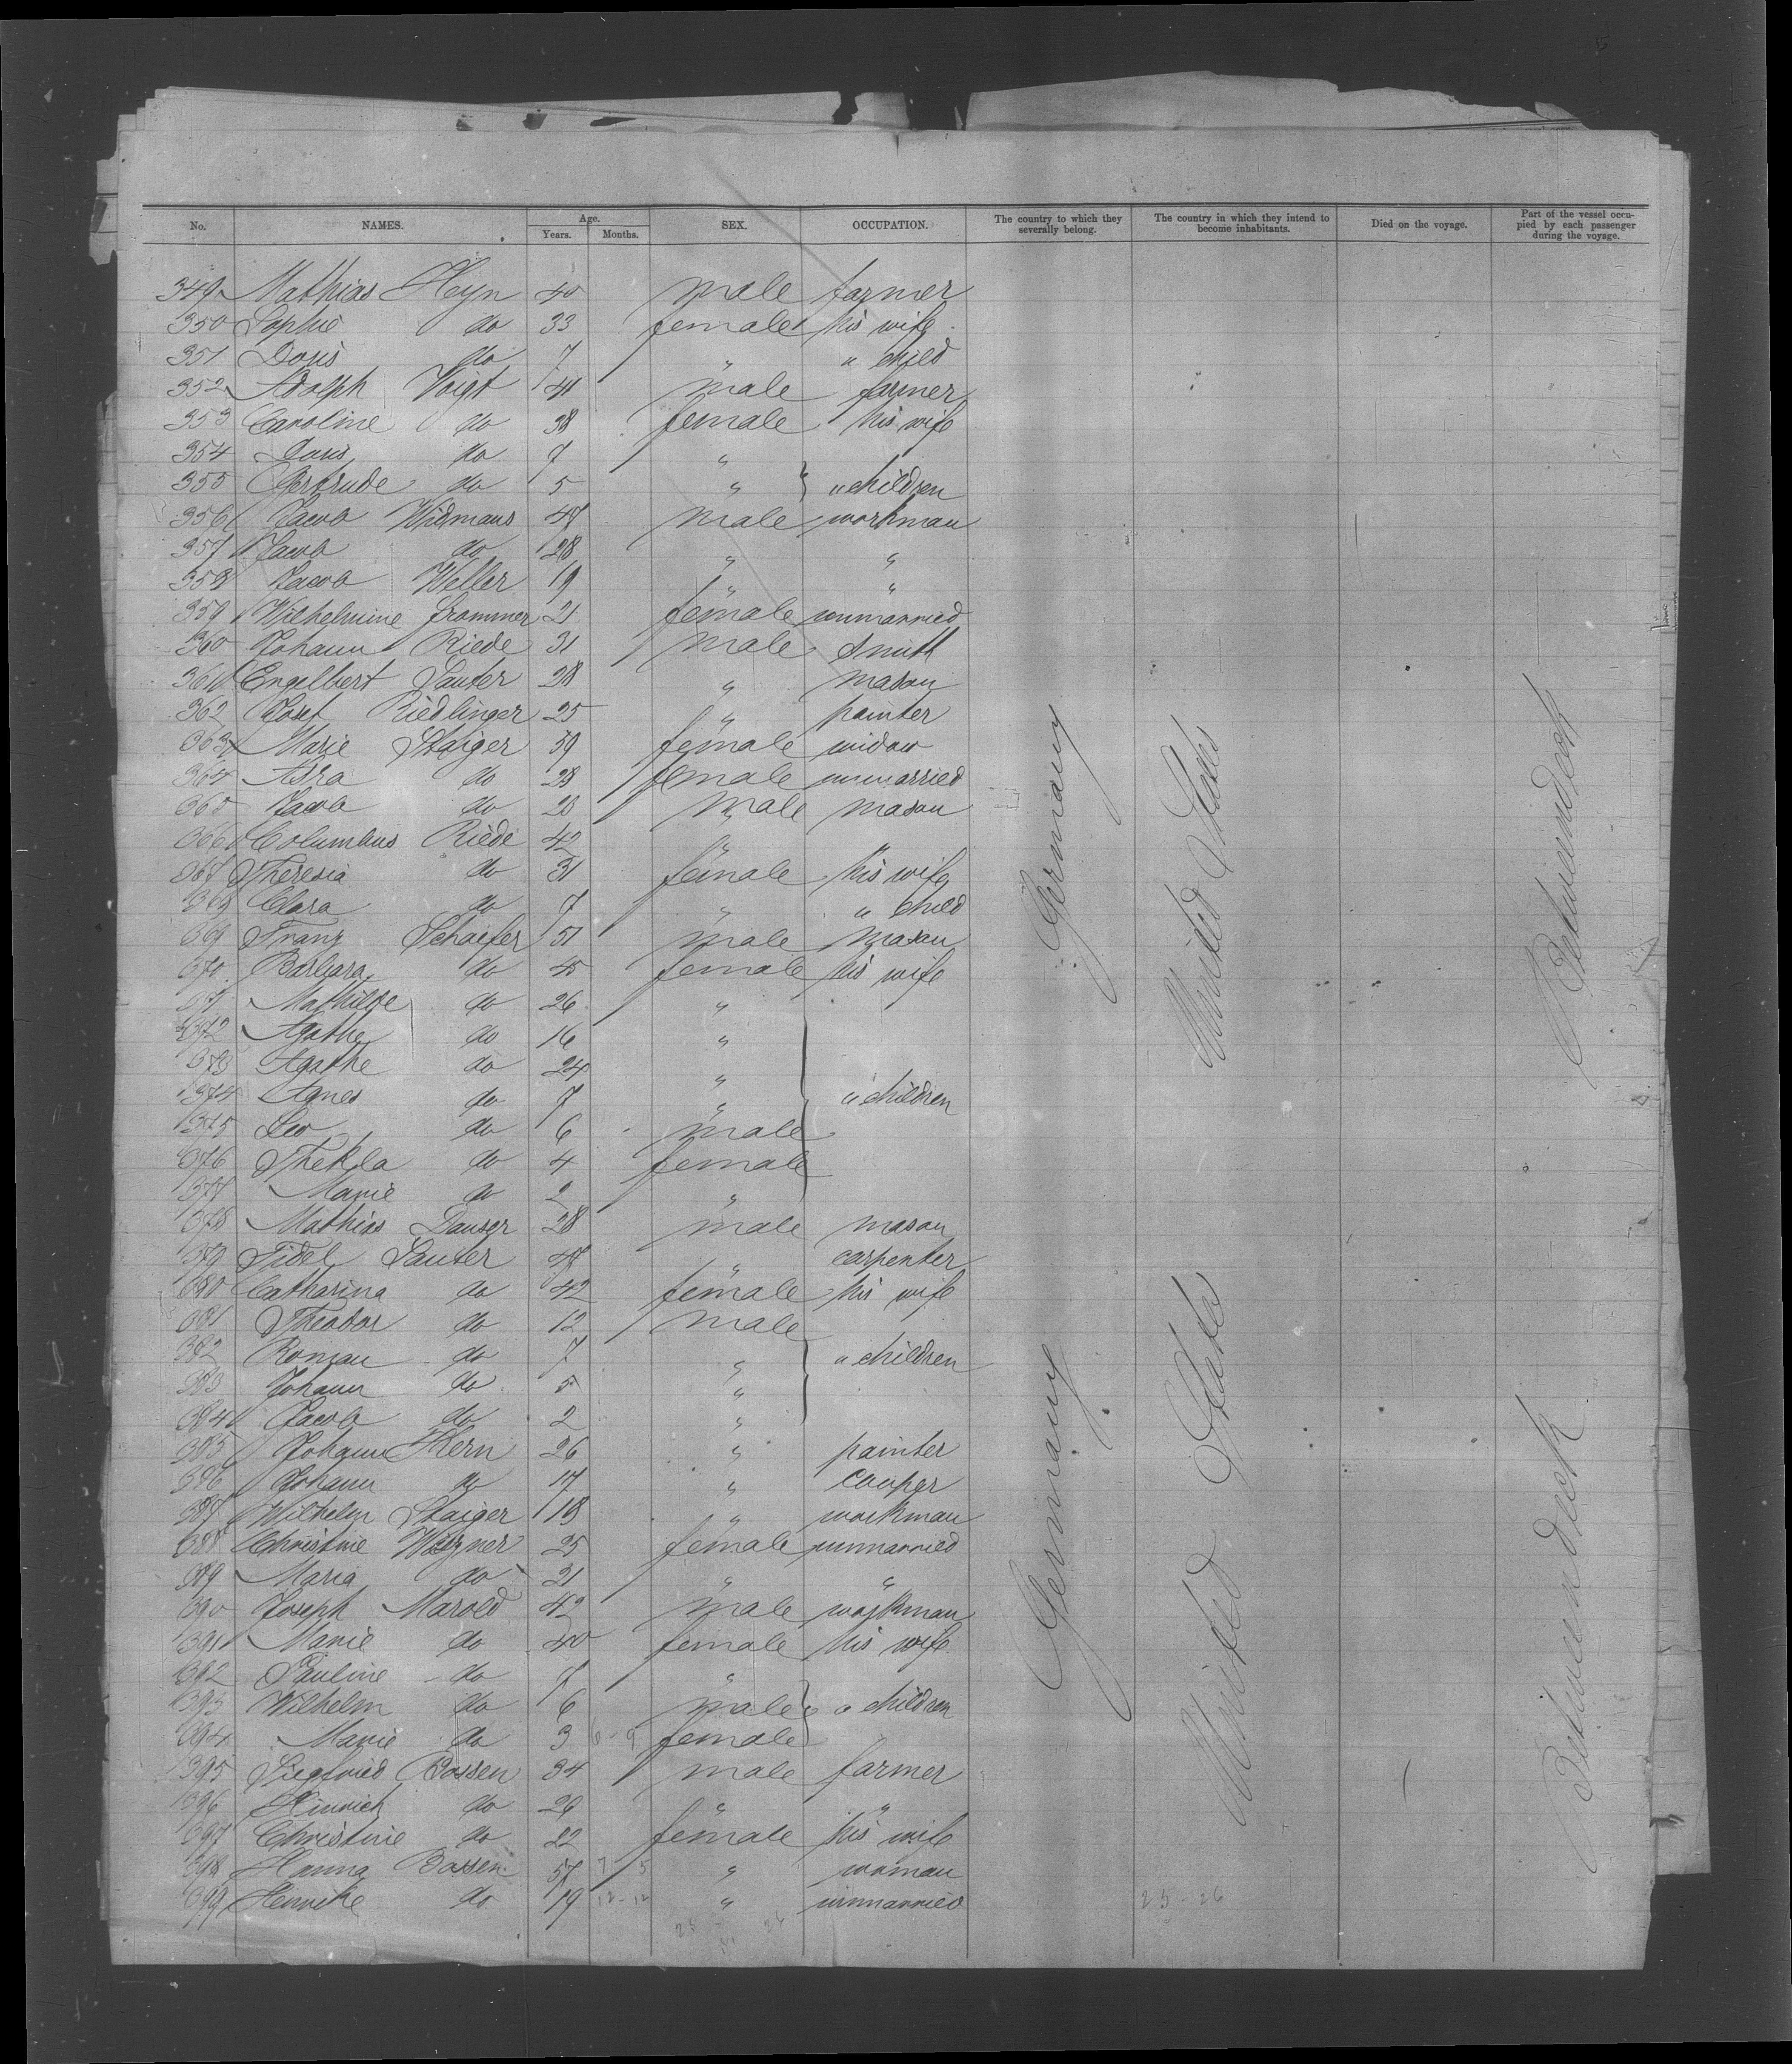 No. NAMES. Age. Years. Months. SEX. OCCUPATION. The country to which they severally belong. The country in which they intend to become inhabitants. Died on the voyage. Part of the vessel occupied by each passenger during the voyage.
349 Mathias Heyn 40 male farmer
350 Sophie do 33 female his wife
351 Doris do 7 " " child
352 Adolph Voigt 41 male farmer
353 Caroline do 38 female his wife
354 Doris do 7 "
355 Gertrude do 5 " " children
356 Jacob Widmaus 47 male workman
357 Jacob do 28 " "
358 Jacob Weller 19 " "
359 Wilhelmine Frommer 21 female unmarried
360 Johann Riede 31 male smith
361 Engelbert Sauter 28 " mason
362 Josef Riedlinger 25 " painter
363 Marie Staiger 59 female widow
364 Asra do 28 female unmarried
365 Jacob do 20 male mason
366 Columbus Riede 42 " "
367 Theresia do 31 female his wife
368 Clara do 7 " " child
369 Franz Schaefer 51 male mason
370 Barbara do 45 female his wife
371 Mathilde do 26 "
372 Agathe do 16 "
373 Agathe do 24 "
374 Agnes do 7 " " children
375 Leo do 6 male
376 Thekla do 4 female
377 Marie do 2 "
378 Mathias Dauser 28 male mason
379 Fidel Sauter 47 " carpenter
380 Catharina do 42 female his wife
381 Theodor do 12 male
382 Roman do 7 " " children
383 Johann do 5 "
384 Jacob do 2 "
385 Johann Kern 26 " painter
386 Johann do 17 " cooper
387 Wilhelm Staiger 18 " workman
388 Christine Wagner 25 female unmarried
389 Maria do 21 " "
390 Joseph Marold 42 male workman
391 Marie do 40 female his wife
392 Pauline do 7 "
393 Wilhelm do 6 male " children
394 Marie do 3 female
395 Siegfried Bossen 34 male farmer
396 Hinrich do 29 " "
397 Christine do 22 female his wife
398 Hanna Bossen 57 " woman
399 Henrike do 19 " unmarried
Germany
United States
Betweendeck
Germany
United States
Betweendeck
25 26